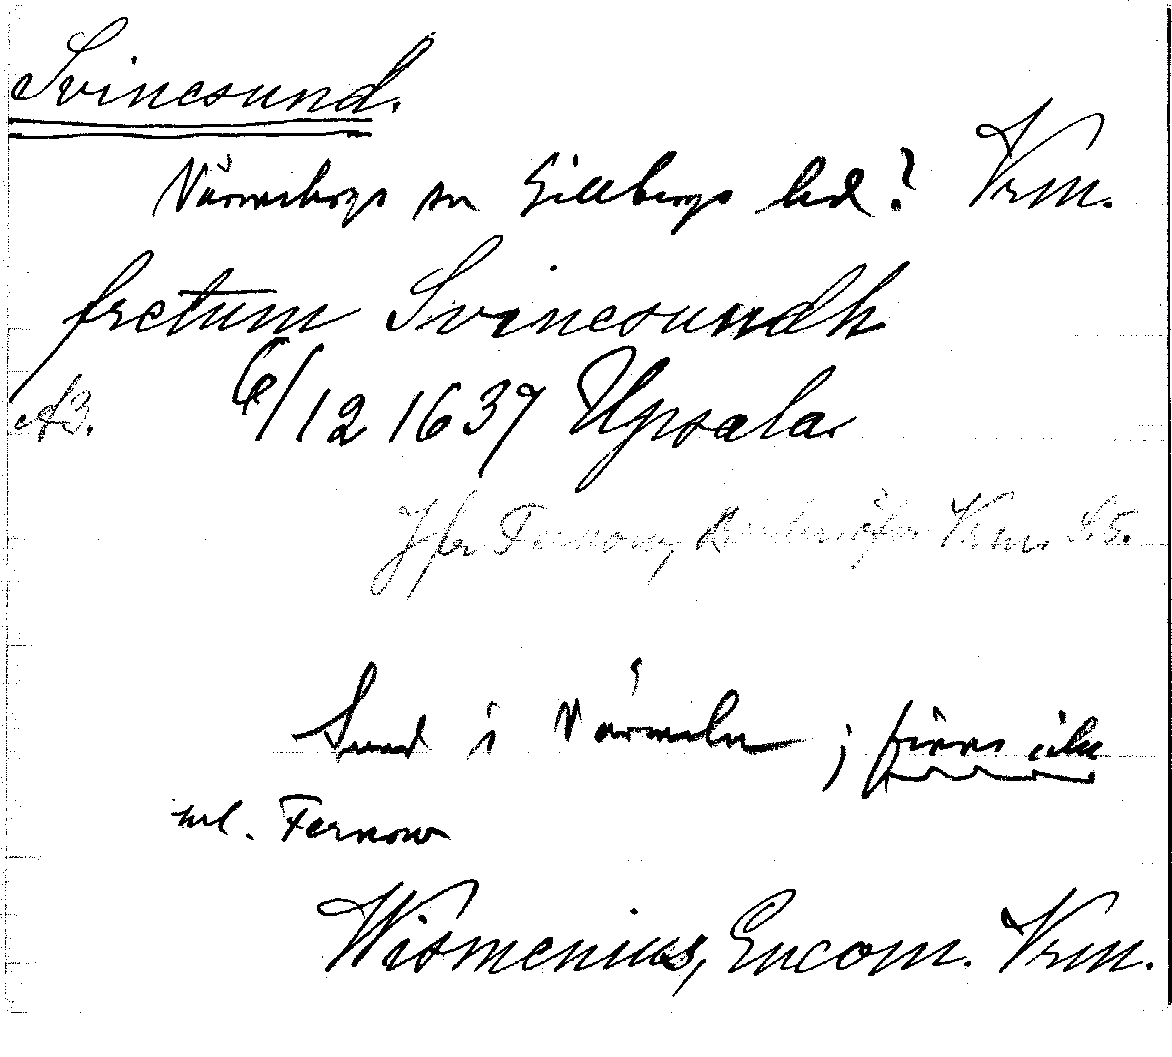 Svinesund.
Värmskogs sn Gillbergs hd? Vrm.
fretum Svinesundh
A3. 6/12 1637 Upsala
Jfr Fernow, Vrm. S 5.
Sund i Värmeln; finns icke
enl. Fernow
Wismenius, Encom. Vrm.